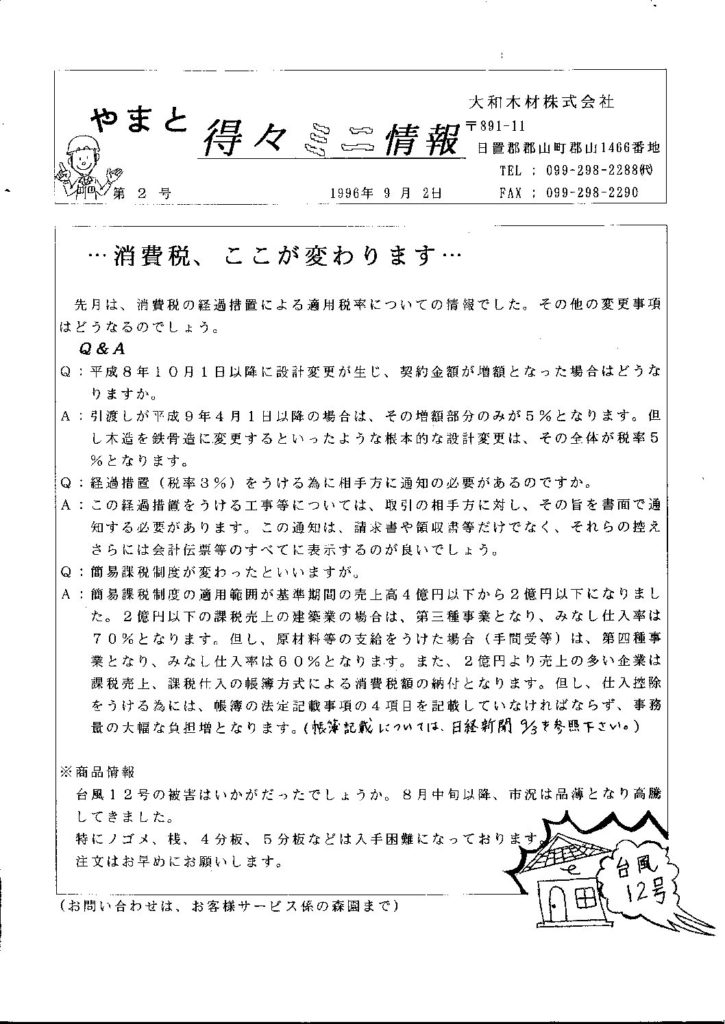 やまと 得々ミニ情報
大和木材株式会社
〒891-11
日置郡郡山町郡山1466番地
TEL : 099-298-2288㈹
FAX : 099-298-2290
第 2 号 1996年 9 月 2日
…消費税、ここが変わります…
先月は、消費税の経過措置による適用税率についての情報でした。その他の変更事項
はどうなるのでしょう。
Q&A
Q：平成８年１０月１日以降に設計変更が生じ、契約金額が増額となった場合はどうな
りますか。
A：引渡しが平成９年４月１日以降の場合は、その増額部分のみが５％となります。但
し木造を鉄骨造に変更するといったような根本的な設計変更は、その全体が税率５
％となります。
Q：経過措置（税率３％）をうける為に相手方に通知の必要があるのですか。
A：この経過措置をうける工事等については、取引の相手方に対し、その旨を書面で通
知する必要があります。この通知は、請求書や領収書等だけでなく、それらの控え
さらには会計伝票等のすべてに表示するのが良いでしょう。
Q：簡易課税制度が変わったといいますが。
A：簡易課税制度の適用範囲が基準期間の売上高４億円以下から２億円以下になりまし
た。２億円以下の課税売上の建築業の場合は、第三種事業となり、みなし仕入率は
７０％となります。但し、原材料等の支給をうけた場合（手間受等）は、第四種事
業となり、みなし仕入率は６０％となります。また、２億円より売上の多い企業は
課税売上、課税仕入の帳簿方式による消費税額の納付となります。但し、仕入控除
をうける為には、帳簿の法定記載事項の４項目を記載していなければならず、事務
量の大幅な負担増となります。(帳簿記載については、日経新聞 9/3を参照下さい。)
※商品情報
台風１２号の被害はいかがだったでしょうか。８月中旬以降、市況は品薄となり高騰
してきました。
特にノゴメ、桟、４分板、５分板などは入手困難になっております。
注文はお早めにお願いします。
台風
12号
(お問い合わせは、お客様サービス係の森園まで)